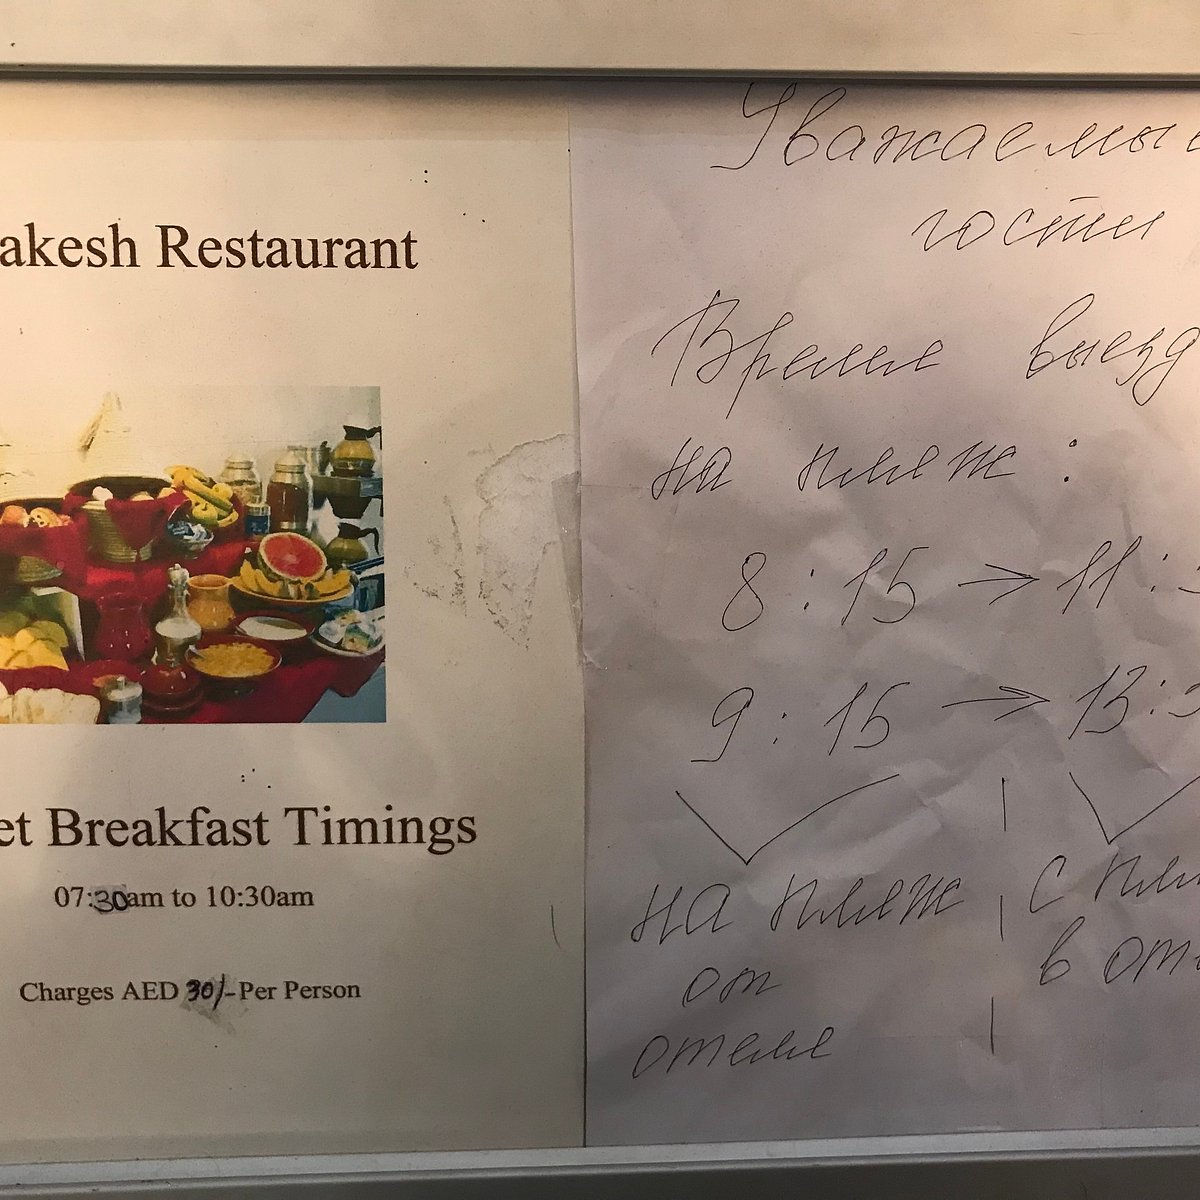 akesh Restaurant
et Breakfast Timings
07:30am to 10:30am
Charges AED 30/- Per Person
Уважаемые
гости
Время выезд
на пляж :
8 : 15 → 11 :
9 : 15 → 13 :
на пляж
от
отеля
с пля
в оте